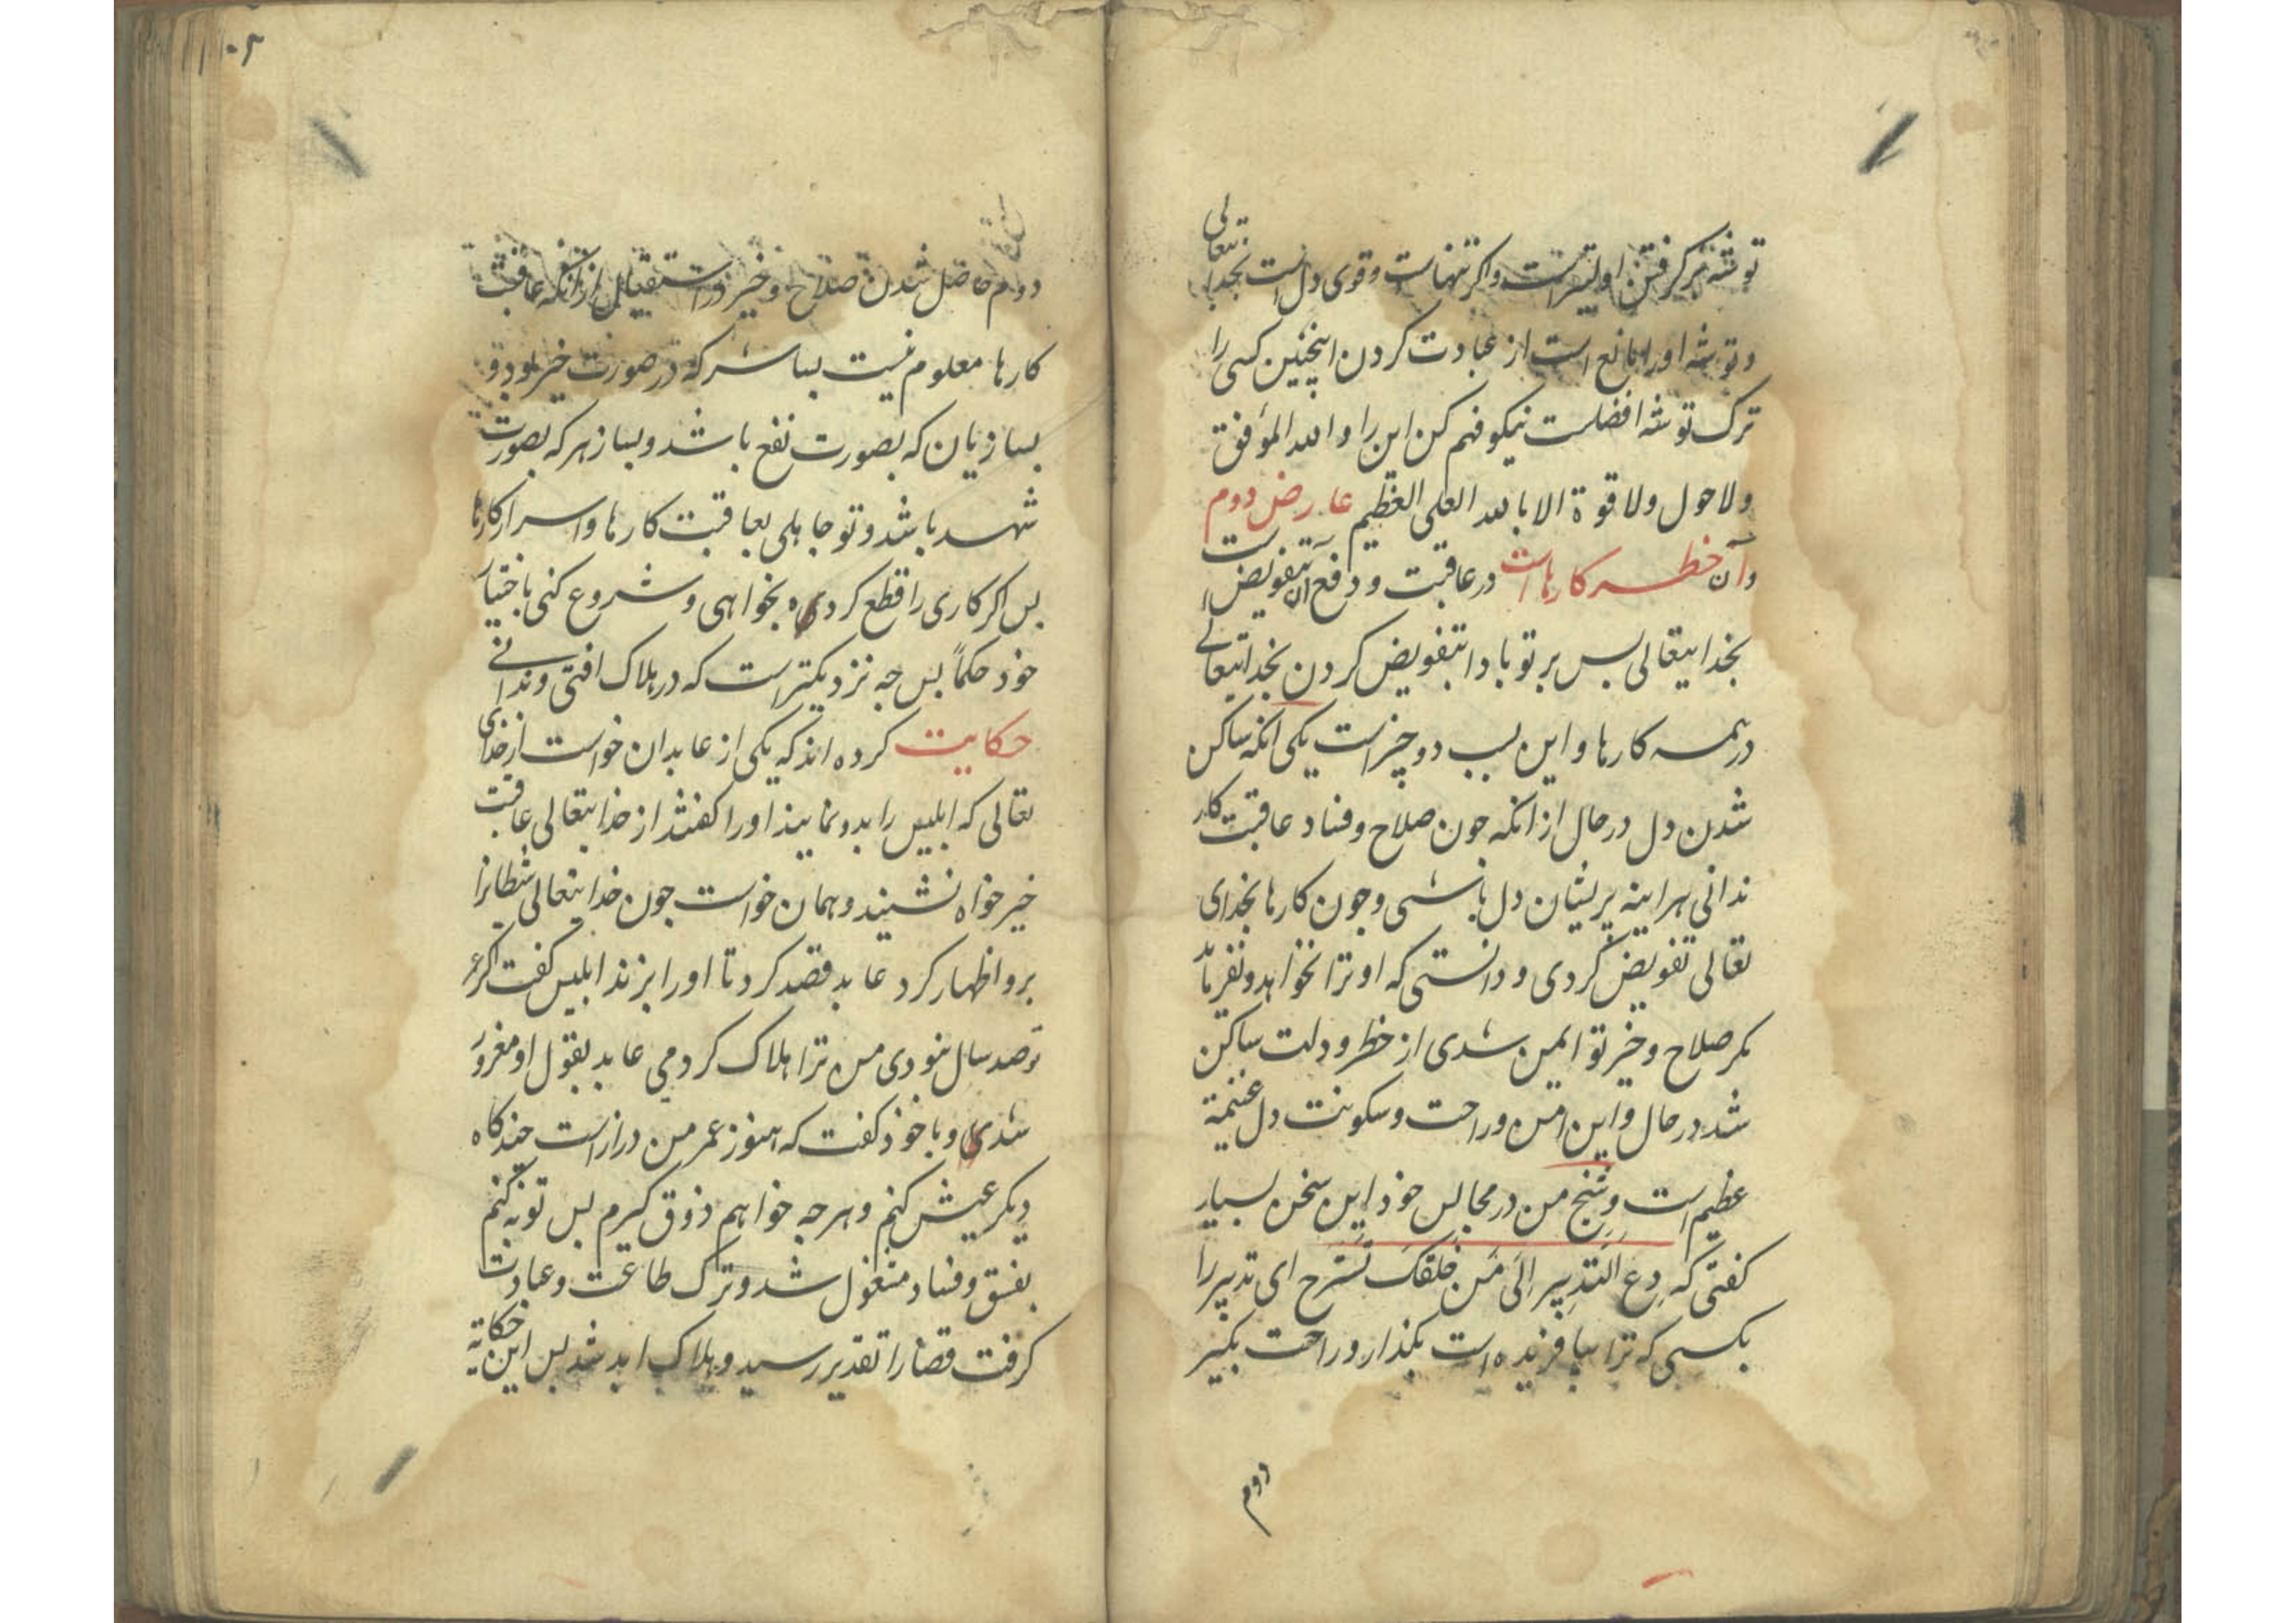 توشه برگرفتن اولیتر است و اکر تنهاست و قوی دل است بخدایتعالی
و توشه او را مانع است از عبادت کردن اینچنین کسی را
ترک توشه افضلست نیکو فهم کن این را و الله الموفق
ولا حول ولا قوة الا بالله العلی العظیم عارض دوم
و آن خطر کارهاست در عاقبت و دفع آن تفویض است
بخدایتعالی بس بر تو بادا بتفویض کردن بخدایتعالی
در همه کارها و این بسبب دو چیز است یکی انکه ساکن
شدن دل در حال از انکه جون صلاح و فساد عاقبت کار
ندانی هراینه پریشان دل باشی و جون کارها بخدای
تعالی تفویض کردی و دانستی که او ترا نخواهد و نفرماید
مکر صلاح و خیر تو ایمن شدی از خطر و دلت ساکن
شد در حال و این امن و راحت و سکونت دل غنیمة
عظیم است و شیخ من در مجالس خود این سخن بسیار
کفتی که دع التدبیر الی من خلقک تسترح ای تدبیر را
بکسی که ترا بیافریده است بکذار و راحت بکیر
دوم
دوم حاصل شدن صلاح و خیر در استقبال از انکه عاقبت
کارها معلوم نیست بسا شر که در صورت خیر بود و
بسا زیان که بصورت نفع باشد و بسا زهر که بصورت
شهد باشد و تو جاهلی بعاقبت کارها و اسرار کارها
بس اکر کاری را قطع کرده بخواهی و شروع کنی باختیار
خود حکماً بس جه نزدیکتر است که در هلاک افتی و ندانی
حکایت کرده اند که یکی از عابدان خواست از خدای
تعالی که ابلیس را بدو نماید او را کفتند از خدایتعالی عاقبت
خیر خواه نشنید و همان خواست جون خدایتعالی شیطانرا
برو اظهار کرد عابد قصد کرد تا او را بزند ابلیس کفت اکر عمر
تو صد سال نبودی من ترا هلاک کردمی عابد بقول او مغرور
شد و با خود کفت که هنوز عمر من دراز است جند کاه
دیکر عیش کنم و هر جه خواهم ذوق کیرم بس توبه کنم
بفسق و فساد مشغول شد و ترک طاعت و عبادت
کرفت قضا را تقدیر رسید و هلاک ابد شد بس این حکایة